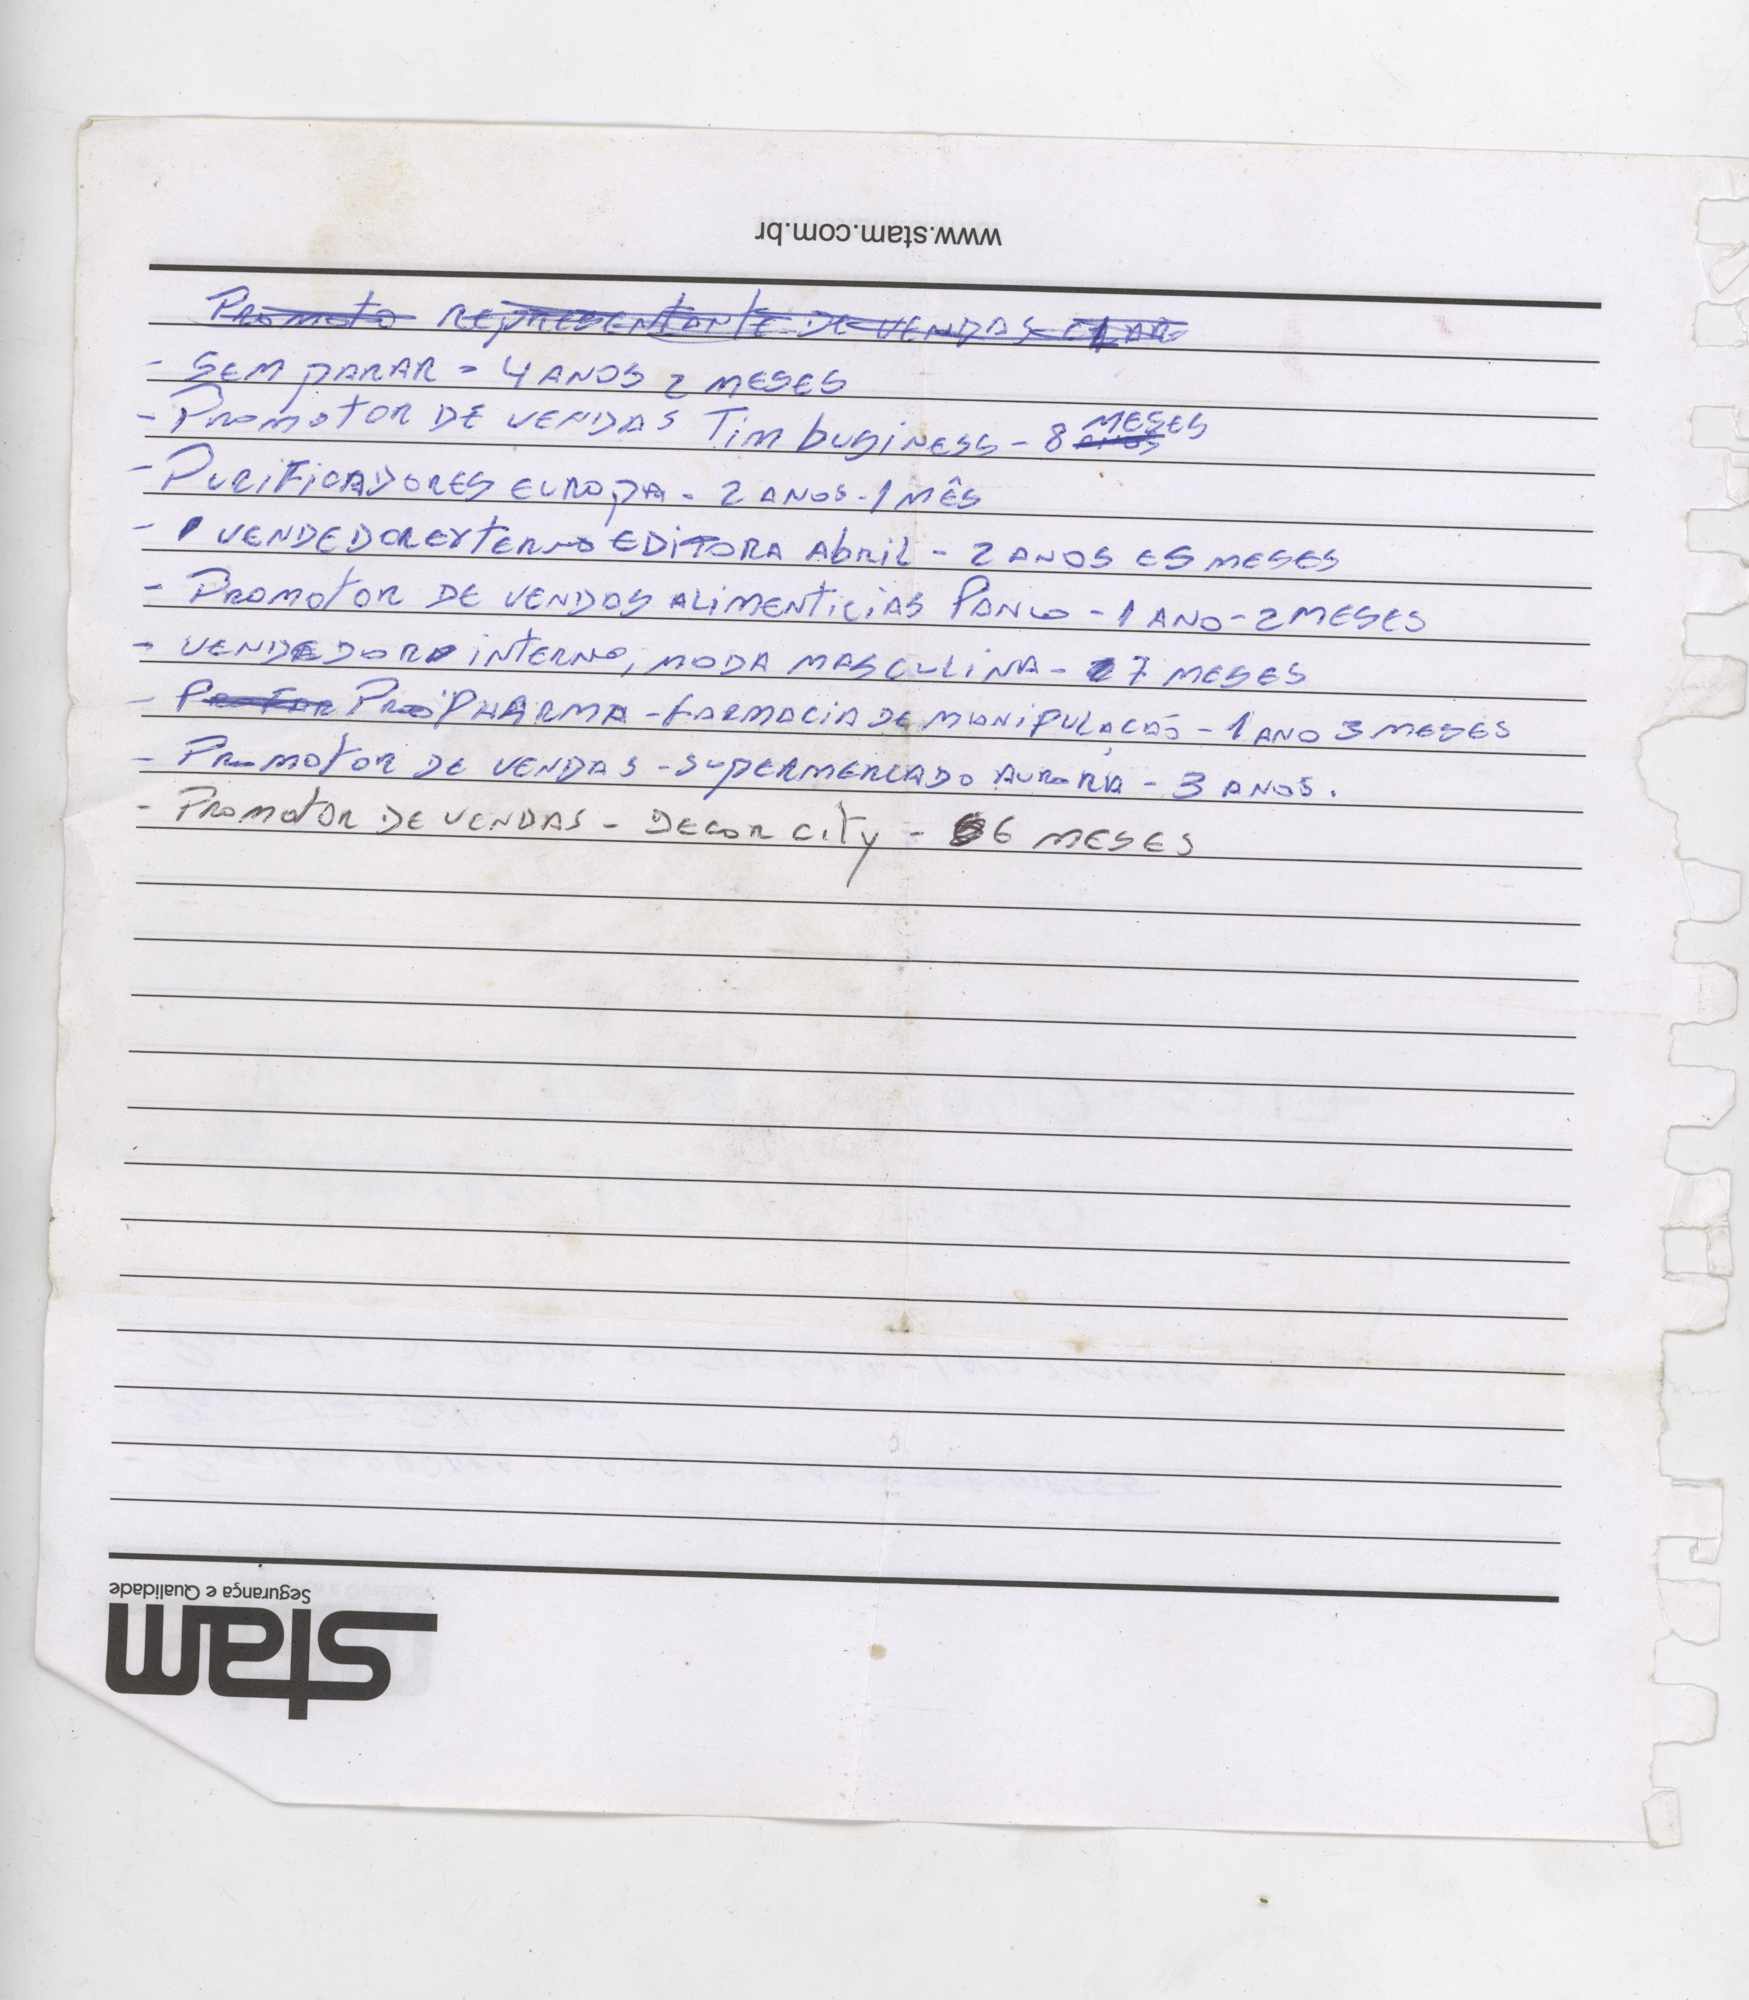 www.stam.com.br
Promoto REPRESENTANTE DE VENDAS CLARO
- SEM PARAR - 4 ANOS 2 MESES
- PROMOTOR DE VENDAS Tim business - 8 anos MESES
- PURIFICADORES EUROPA - 2 ANOS - 1 MÊS
- VENDEDOR EXTERNO EDITORA Abril - 2 ANOS E 5 MESES
- PROMOTOR DE VENDAS ALIMENTICIAS PANCO - 1 ANO - 2 MESES
- VENDEDOR INTERNO, MODA MASCULINA - 7 MESES
- PROPHARMA - FARMACIA DE MANIPULAÇÃO - 1 ANO 3 MESES
- PROMOTOR DE VENDAS - SUPERMERCADO AURORA - 3 ANOS.
- PROMOTOR DE VENDAS - DECOR CITY - 6 MESES
Segurança e Qualidade
stam